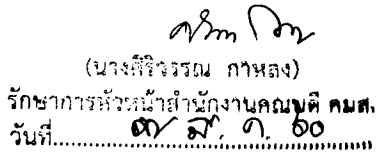 (นางศิริวรรณ กาหลง)
รักษาการหัวหน้าสำนักงานคณบดี คมส.
วันที่ ๓๗ มี. ค. ๖๐